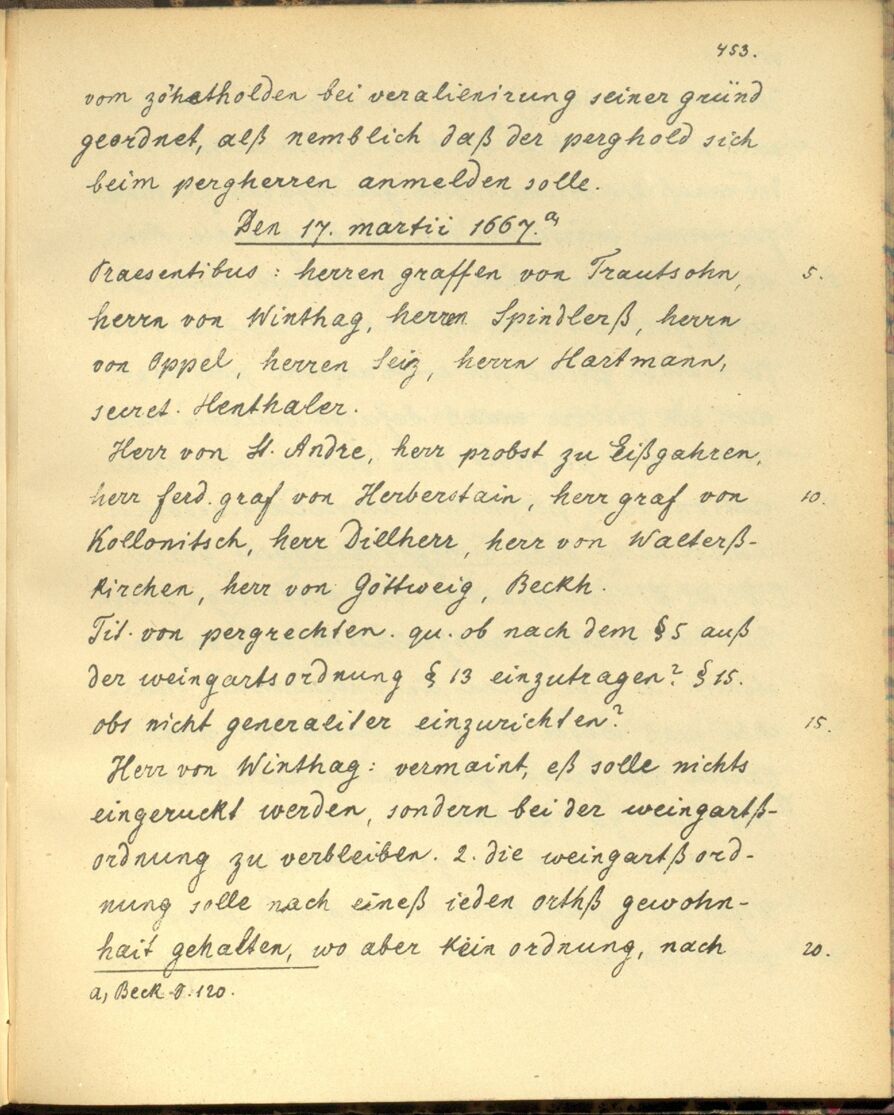 453.
vom zöhetholden bei veralienirung seiner gründ
geordnet, alß nemblich daß der perghold sich
beim pergherren anmelden solle.
Den 17. martii 1667.a)
Praesentibus: herren graffen von Trautsohn, 5.
herrn von Winthag, herren Spindlerß, herrn
von Oppel, herren Seiz, herrn Hartmann,
secret. Henthaler.
Herr von St. Andre, herr probst zu Eißgahren,
herr ferd. graf von Herberstain, herr graf von 10.
Kollonitsch, herr Dillherr, herr von Walterß-
kirchen, herr von Göttweig, Beckh.
Tit. von pergrechten. qu. ob nach dem § 5 auß
der weingartsordnung § 13 einzutragen? § 15.
obs nicht generaliter einzurichten? 15.
Herr von Winthag: vermaint, eß solle nichts
eingeruckt werden, sondern bei der weingartß-
ordnung zu verbleiben. 2. die weingartßord-
nung solle nach eineß ieden orthß gewohn-
hait gehalten, wo aber kein ordnung, nach 20.
a) Beck p. 120.